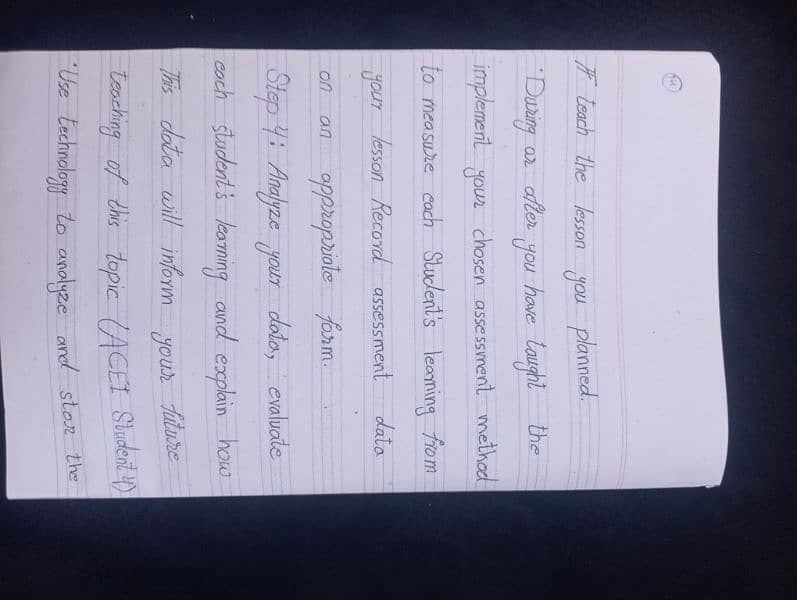 teach the lesson you planned.
• During or after you have taught the
implement your chosen assessment method
to measure each Student's learning from
your lesson Record assessment data
on an appropriate form.
Step 4: Analyze your data, evaluate
each student's learning and explain how
This data will inform your future
teaching of this topic (ACEI Student 4)
• Use technology to analyze and stor the